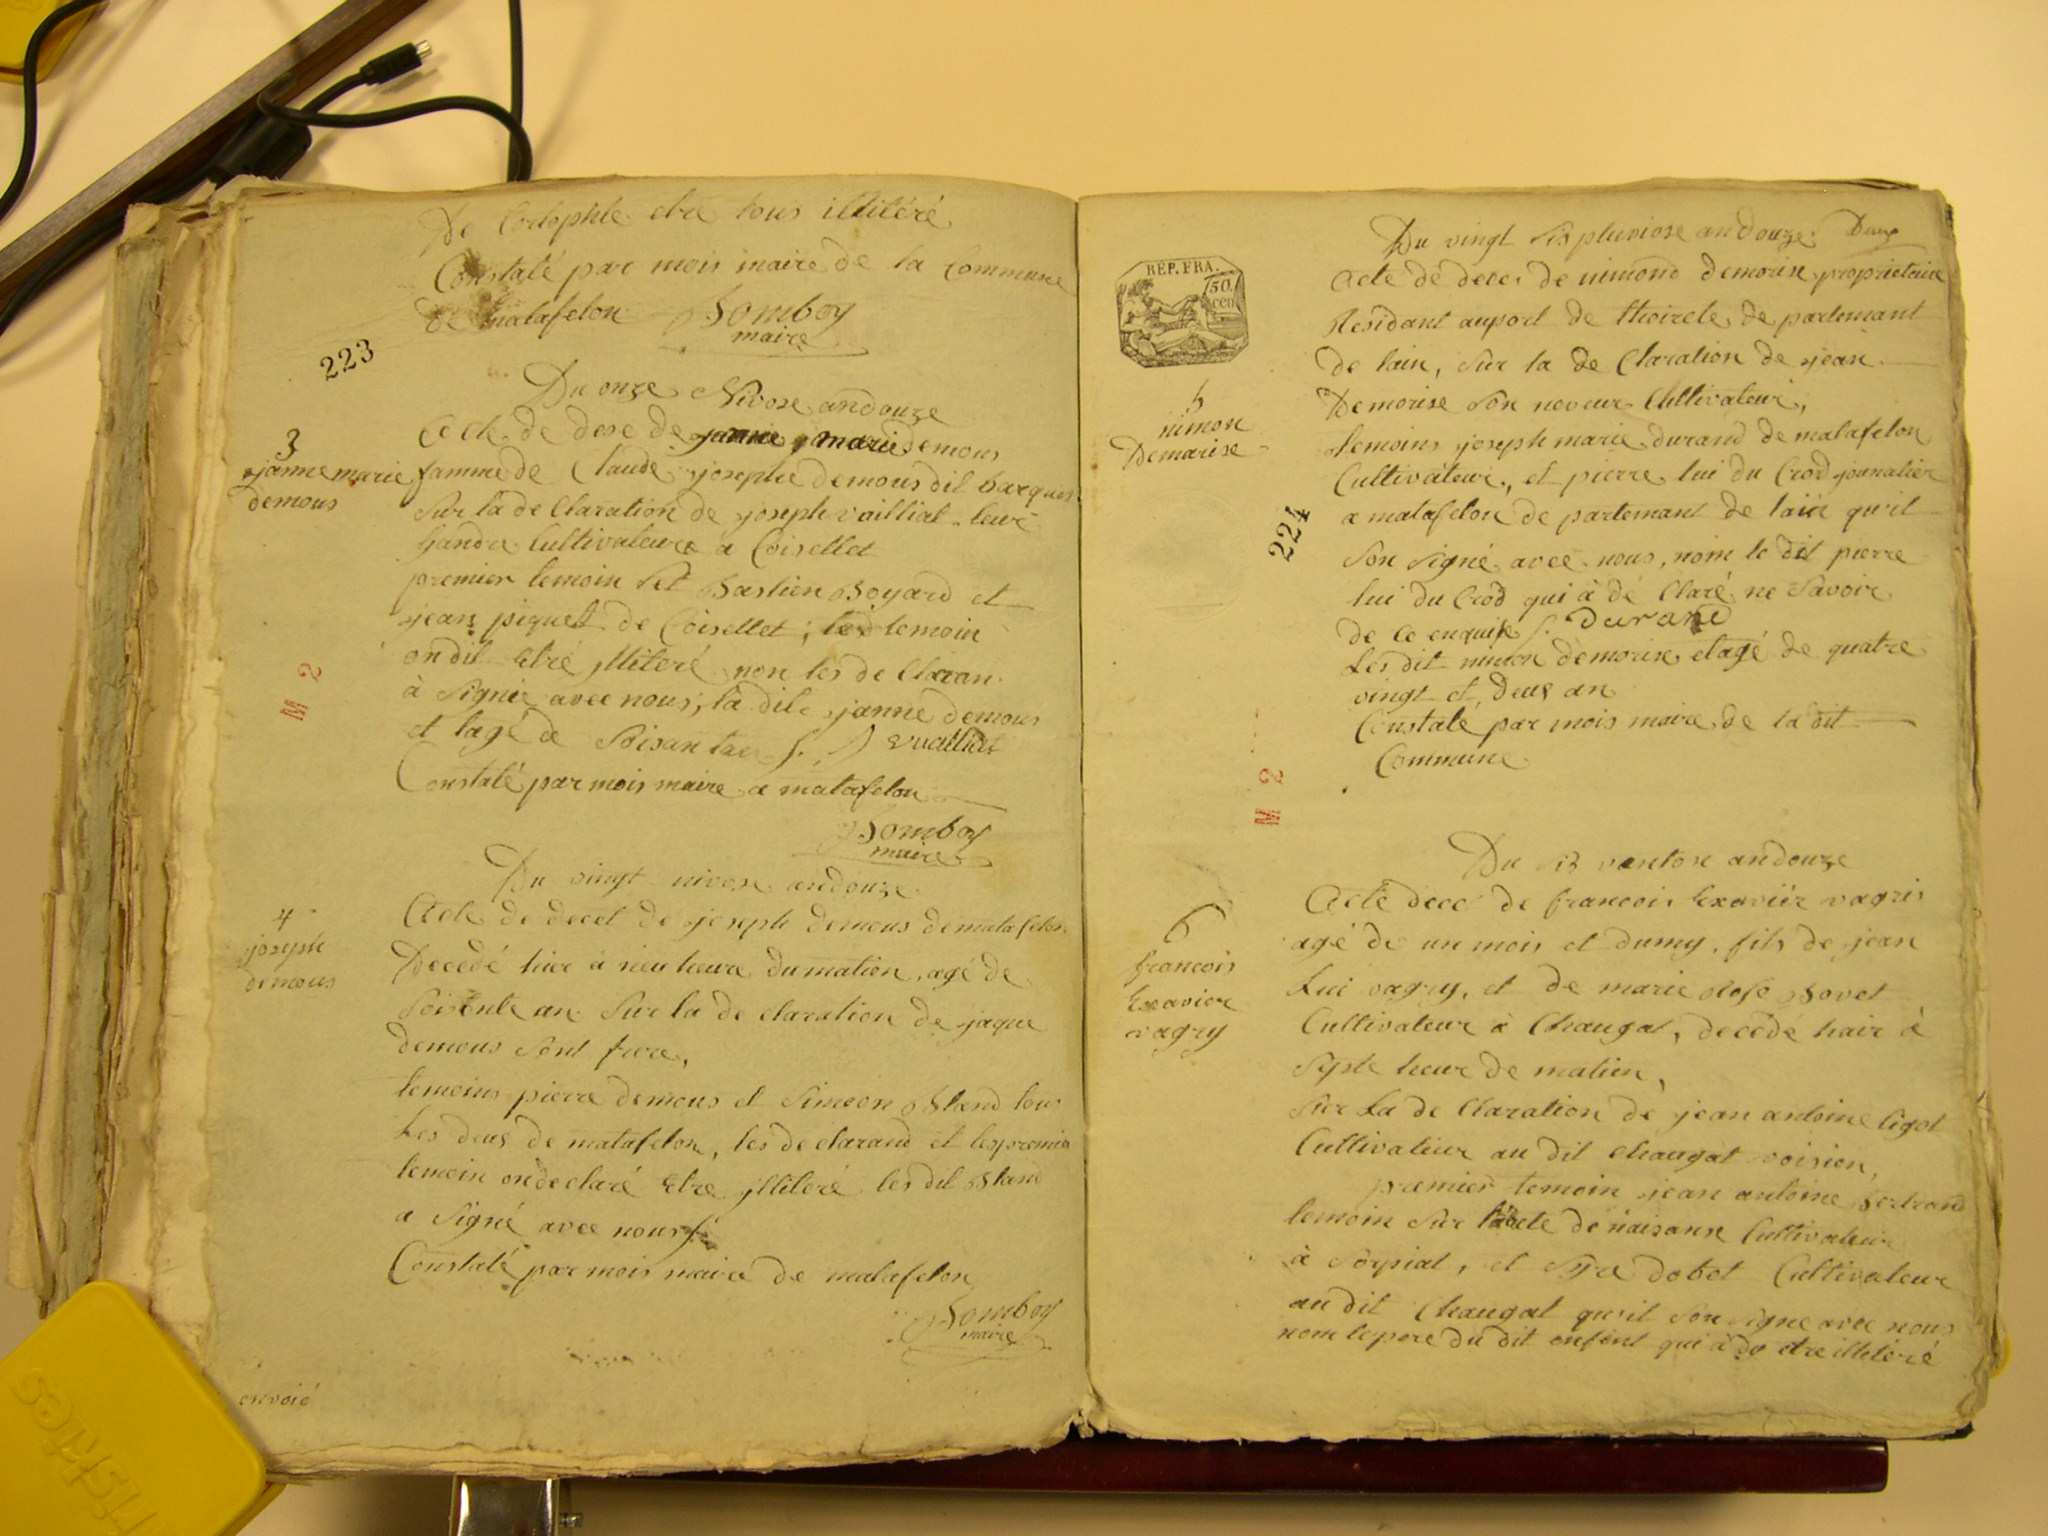 De Cortophle etre tous illitéré
Constaté par mois maire de la Commune
de matafelon Bomboy
maire
223
Du onze Nivose andouze
3
janne marie
demous
Acte de dese de janne marie demous
famme de Claude josephe demous dit barques
Sur la de Claration de joseph vailliat leur
jandre Cultivateure a Coisellet
premier temoin Set Bastien Boyard et
jean piquet de Coisellet ; les temoin
on dit Etré jlliteré non les de Claran
à Signie avec nous, la dite janne demous
et lagé de Soisantae f. J vuailliat
Constaté par mois maire a matafelon
Bomboy
maire
M 2
Du vingt nivose andouze
4
joseph
demous
Acte de decet de joseph demous de matafelon
Decedé hier à neu heure du matien, agé de
Soisente an Sur la de claration de jaque
demous Sont frere,
temoins pierre demous et Simeon Bland tous
Les deus de matafelon, les declarand et les premie
temoin on declaré Etre jlliteré les dit Bland
a Signé avec nous f.
Constaté par mois maire de matafelon
Bomboy
maire
envoié
REP. FRA.
50.
cen
Du vingt Sis pluviose andouze
5
nimon
Demarise
Acte de deces de nimond demorise propriétaire
Residant auport de thoirete de partemant
de lain, Sur la de Claration de jean
Demorise Son neveur Cultivateur,
temoins joseph marie durand de matafelon
Cultivateur, et pierre lui du Crod jounalier
a matafelon de partemant de lain qu'il
Son Signé avec nous, nom le dit pierre
lui du Crod qui à dé Claré ne Savoir
de ce enquis f. Durand
Les dit nimon demorise etagé de quatre
vingt et deus an
Constaté par mois maire de la dit
Commune
224
M 2
Du Sis vantose andouze
6
francois
Exavier
vagry
Acte dece de francois Exaviér vagris
agé de un mois et dumy, fils de jean
Lui vagry, et de marie Rose Bovet
Cultivateur à Chaugat, decédé hair à
Septe heur de matien,
Sur La de Claration de jean antoine Cigot
Cultivateur au dit Chaugat voisien,
premier temoin jean antoine Bertrand
temoin Sur l'acte de naisanse Cultivateur
à Sorpiat, et dobet Cultivateur
au dit Chaugat qu'il Son Signe avec nous
nom le pere du dit enfent qui à de etre illitéré